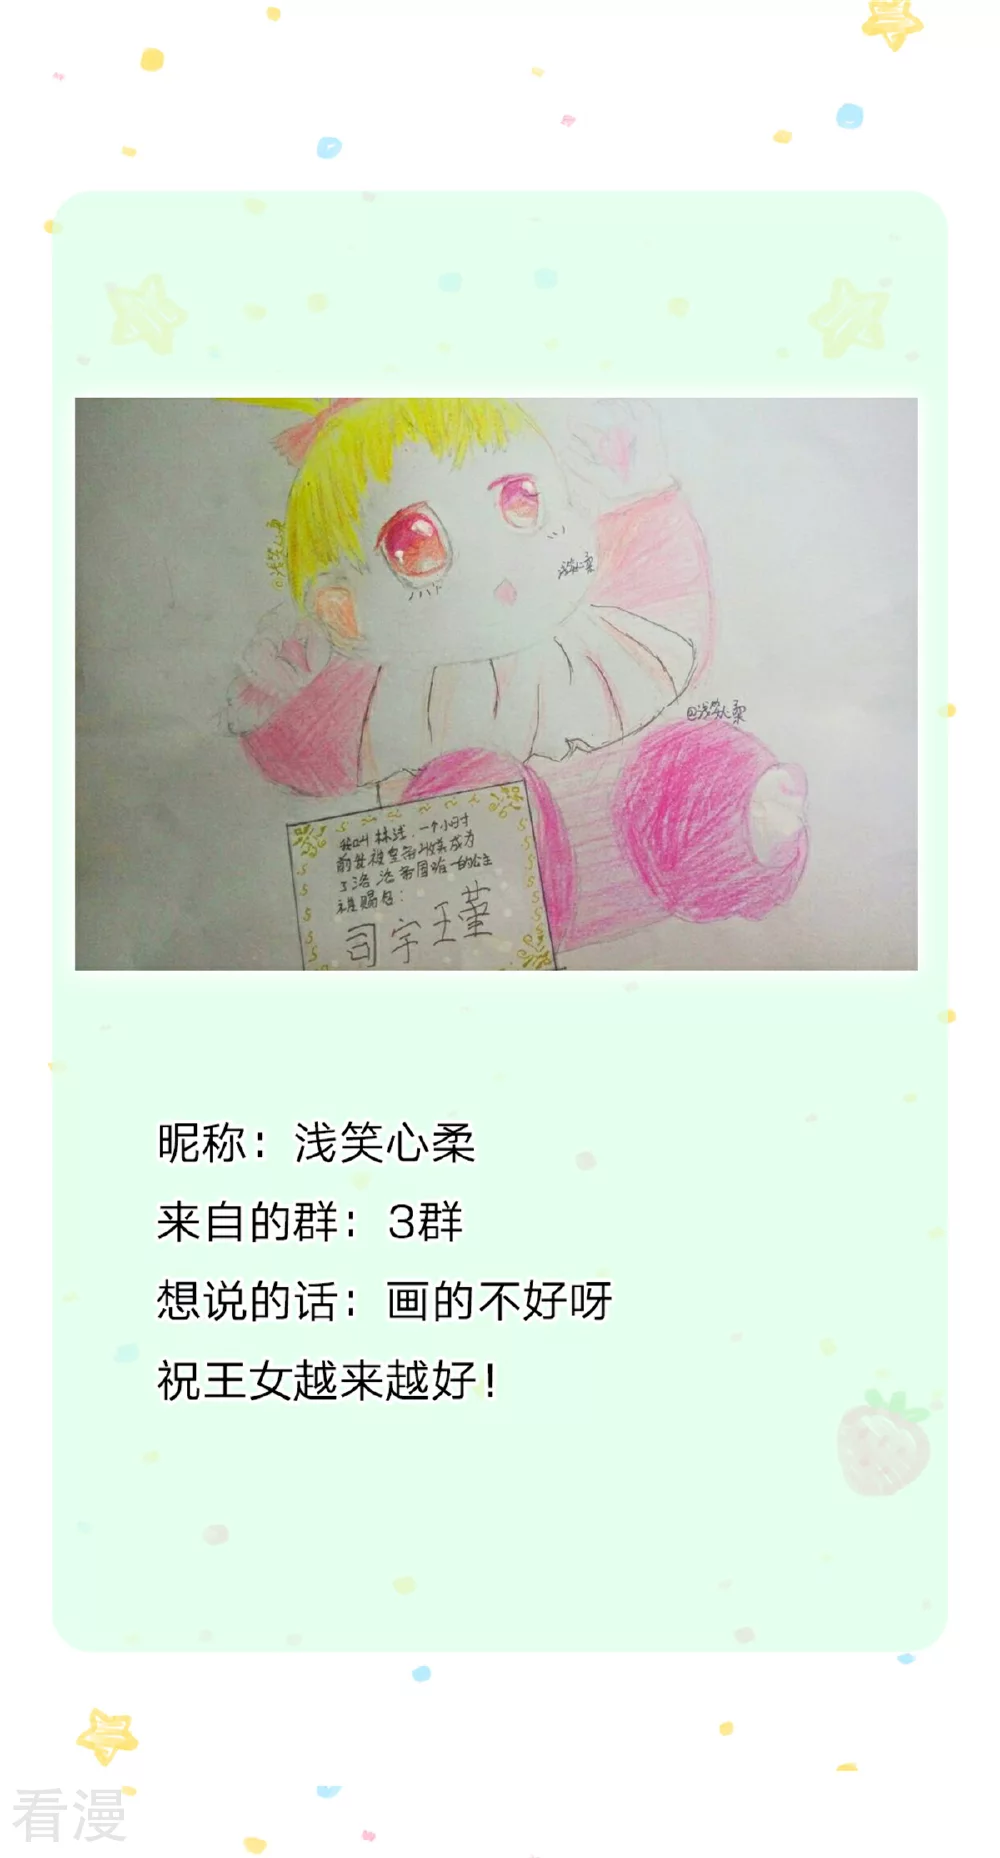 @浅笑心柔
浅笑心柔
@浅笑心柔
我叫林浅,一个小时
前并被皇帝收养成为
了洛洛帝国唯一的公主
并赐名:
司宇瑾
昵称：浅笑心柔
来自的群：3群
想说的话：画的不好呀
祝王女越来越好！
看漫